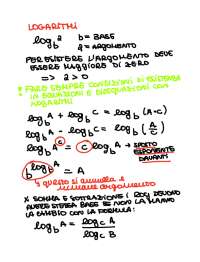 LOGARITMI
log b a b = BASE
a = ARGOMENTO
PER ESISTERE L'ARGOMENTO DEVE
ESSERE MAGGIORE DI ZERO
=> a > 0
* FARE SEMPRE CONDIZIONI DI ESISTENZA
IN EQUAZIONI E DISEQUAZIONI CON
LOGARITMI
log b A + log b C = log b (A·C)
log b A - log b C = log b (A/C)
log b A^C = C log b A → SPOSTO
ESPONENTE
DAVANTI
b^log b A = A
questo si annulla e
rimane argomento
X SOMMA E SOTTRAZIONE I LOG DEVONO
AVERE STESSA BASE SE NON LA HANNO
LA CAMBIO CON LA FORMULA:
log b A = log c A / log c B